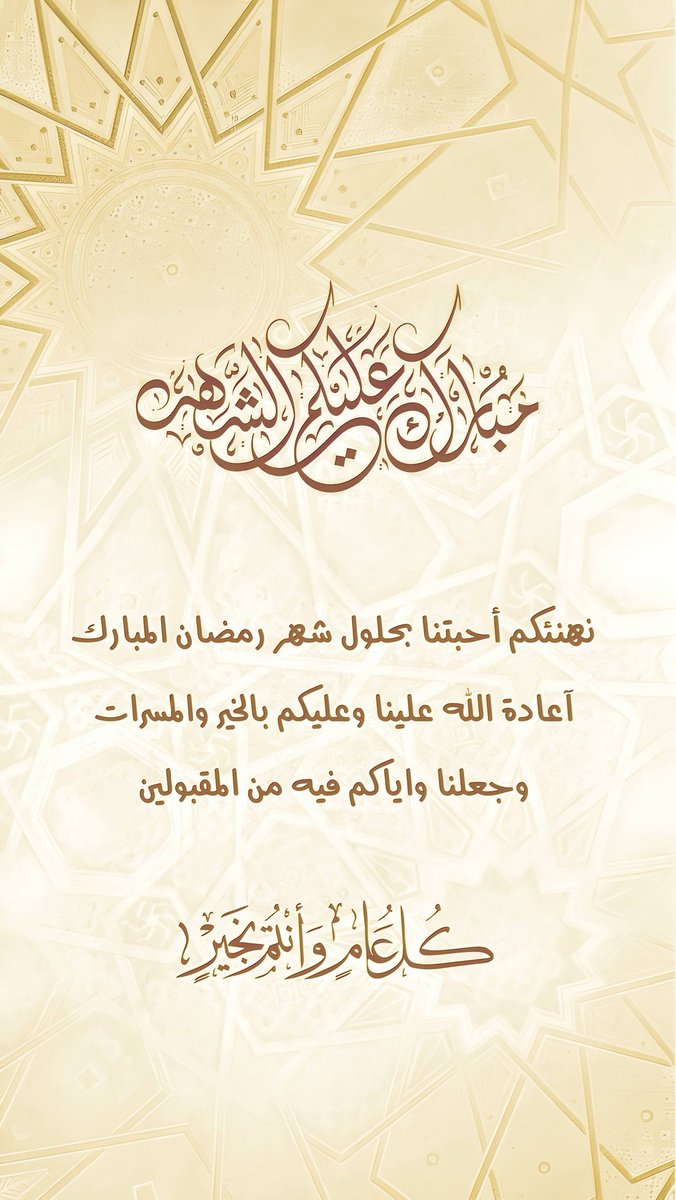 مُبارك عليكم الشَّهر
نهنئكم أحبتنا بحلول شهر رمضان المبارك
آعادة الله علينا وعليكم بالخير والمسرات
وجعلنا واياكم فيه من المقبولين
كُل عَامٍ وَأنتُم بَخَيرٍ